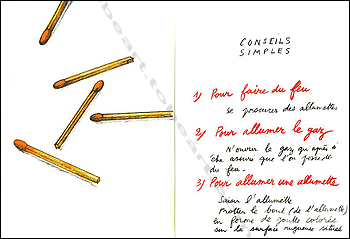 CONSEILS
SIMPLES
1) Pour faire du feu
se procurer des allumettes
2) Pour allumer le gaz
N'ouvrir le gaz qu'après s'
être assuré que l'on possède
du feu.
3) Pour allumer une allumette
Saisir l'allumette
Frotter le bout (de l'allumette)
en forme de goutte colorée
sur la surface rugueuse située